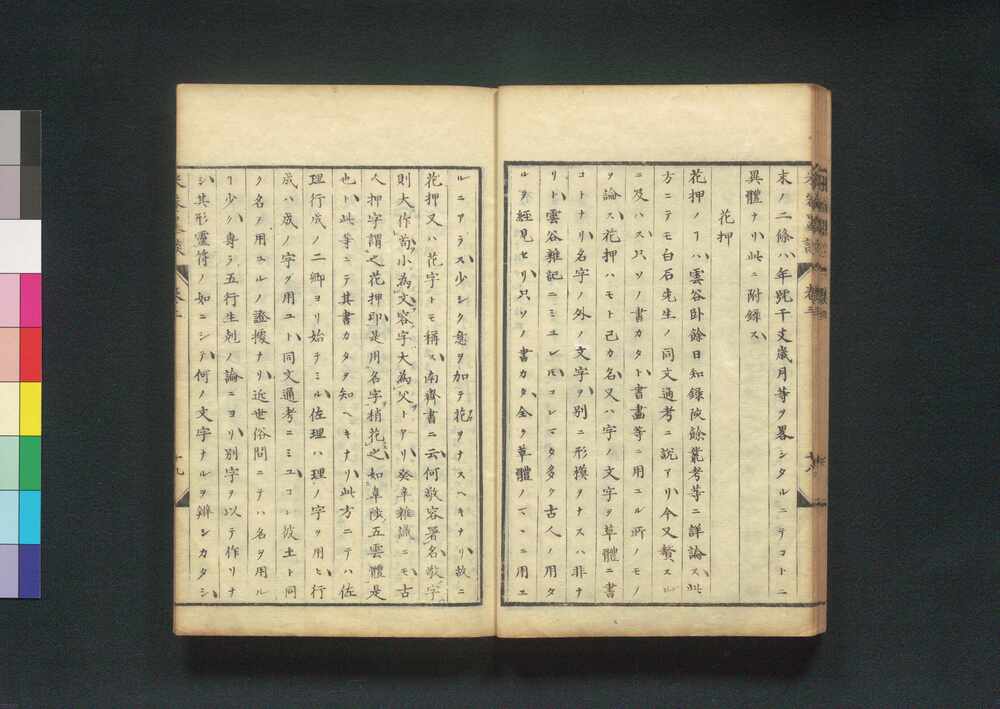 末ノ二條ハ年號干支歳月等ヲ畧シタルニテコトニ
異體ナリ此ニ附錄ス
花押
花押ノヿハ雲谷臥餘日知錄陔餘叢考等ニ詳論ス此
方ニテモ白石先生ノ同文通考ニ説アリ今又贅スル
ニ及ハス只ソノ書カタト書畫等ニ用ユル所ノモノ
ヲ論ス花押ハモト己カ名又ハ字ノ文字ヲ草體ニ書
コトナリ名字ノ外ノ文字ヲ別ニ形模ヲナスハ非ナ
リト雲谷雜記ニミエレトモコレマタ多ク古人ノ用タ
ルヲ經見セリ只ソノ書カタ全ク草體ノマヽニ用ユ
ルニアラス少シク意ヲ加テ花ヲナスヘキナリ故ニ
花押又ハ花字トモ稱ス南齊書ニ云何敬容署名敬字
則大作苟小為文容字大為父トアリ癸辛雜識ニモ古
人押字謂之花押印是用名字稍花之如韋陟五雲體是
也ト此等ニテ其書カタヲ知ヘキナリ此方ニテハ佐
理行成ノ二卿ヨリ始テミル佐理ハ理ノ字ヲ用ヒ行
成ハ成ノ字ヲ用ユト同文通考ニミユコレ彼土ト同
ク名ヲ用ユルノ證據ナリ近世俗間ニテハ名ヲ用ル
ヿ少ク專ラ五行生剋ノ論ニヨリ別字ヲ以テ作リナ
シ其形靈符ノ如ニシテ何ノ文字ナルヲ辨シカタシ